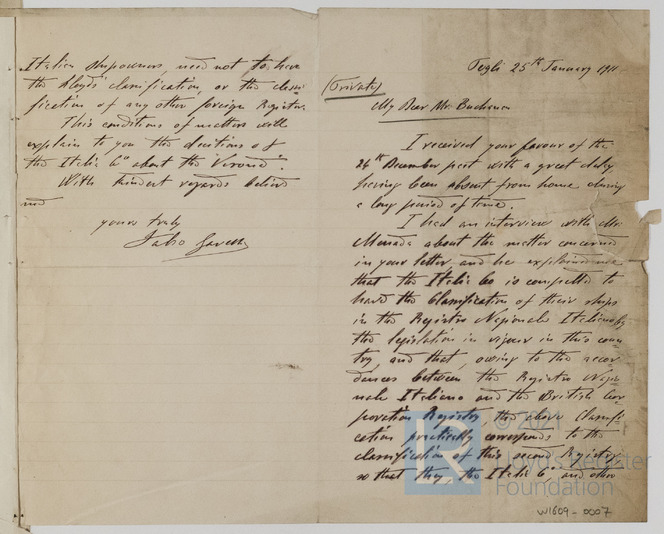 Pegli 25th January 1911
(Private)
My Dear Mr. Buchanan
I received your favour of the
26th December past with a great delay
having been absent from home during
a long period of time.
I had an interview with Mr
Menada about the matter concerned
in your letter, and he explained me
that the Italia Co is compelled to
have the Classification of their ships
in the Registro Nazionale Italiano by
the legislation in vigour in this coun
try, and that, owing to the accor
dances between the Registro Nazio
nale Italiano and the British Cor
poration Registry, the above Classifi
cation practically corresponds to the
classification of this second Registry
so that they, the Italia Co and other
Italian shipowners, need not to have
the Lloyd's classification, or the classi
fication of any other foreign Register.
This conditions of matters will
explain to you the decisions of
the Italia Co about the "Verona".
With kindest regards believe
me
yours truly
© 2021
LR
Lloyd's Register
Foundation
W1609-0007